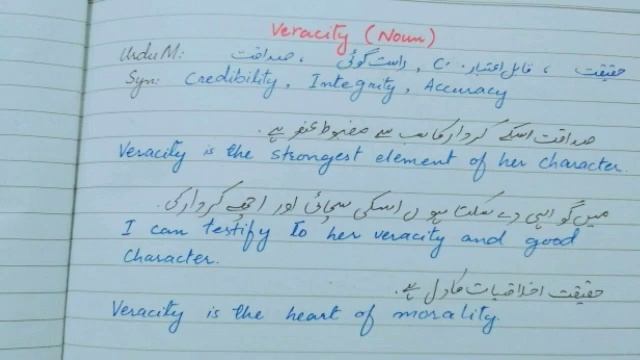 Veracity (Noun)
Urdu M: صداقت ، راست گوئی ، قابل اعتبار ، حقیقت
Syn: Credibility, Integrity, Accuracy
صداقت اسکے کردار کا سب سے مضبوط عنصر ہے۔
Veracity is the strongest element of her character.
میں گواہی دے سکتا ہوں اسکی سچائی اور اچھے کردار کی۔
I can testify to her veracity and good
Character.
حقیقت اخلاقیات کا دل ہے۔
Veracity is the heart of morality.